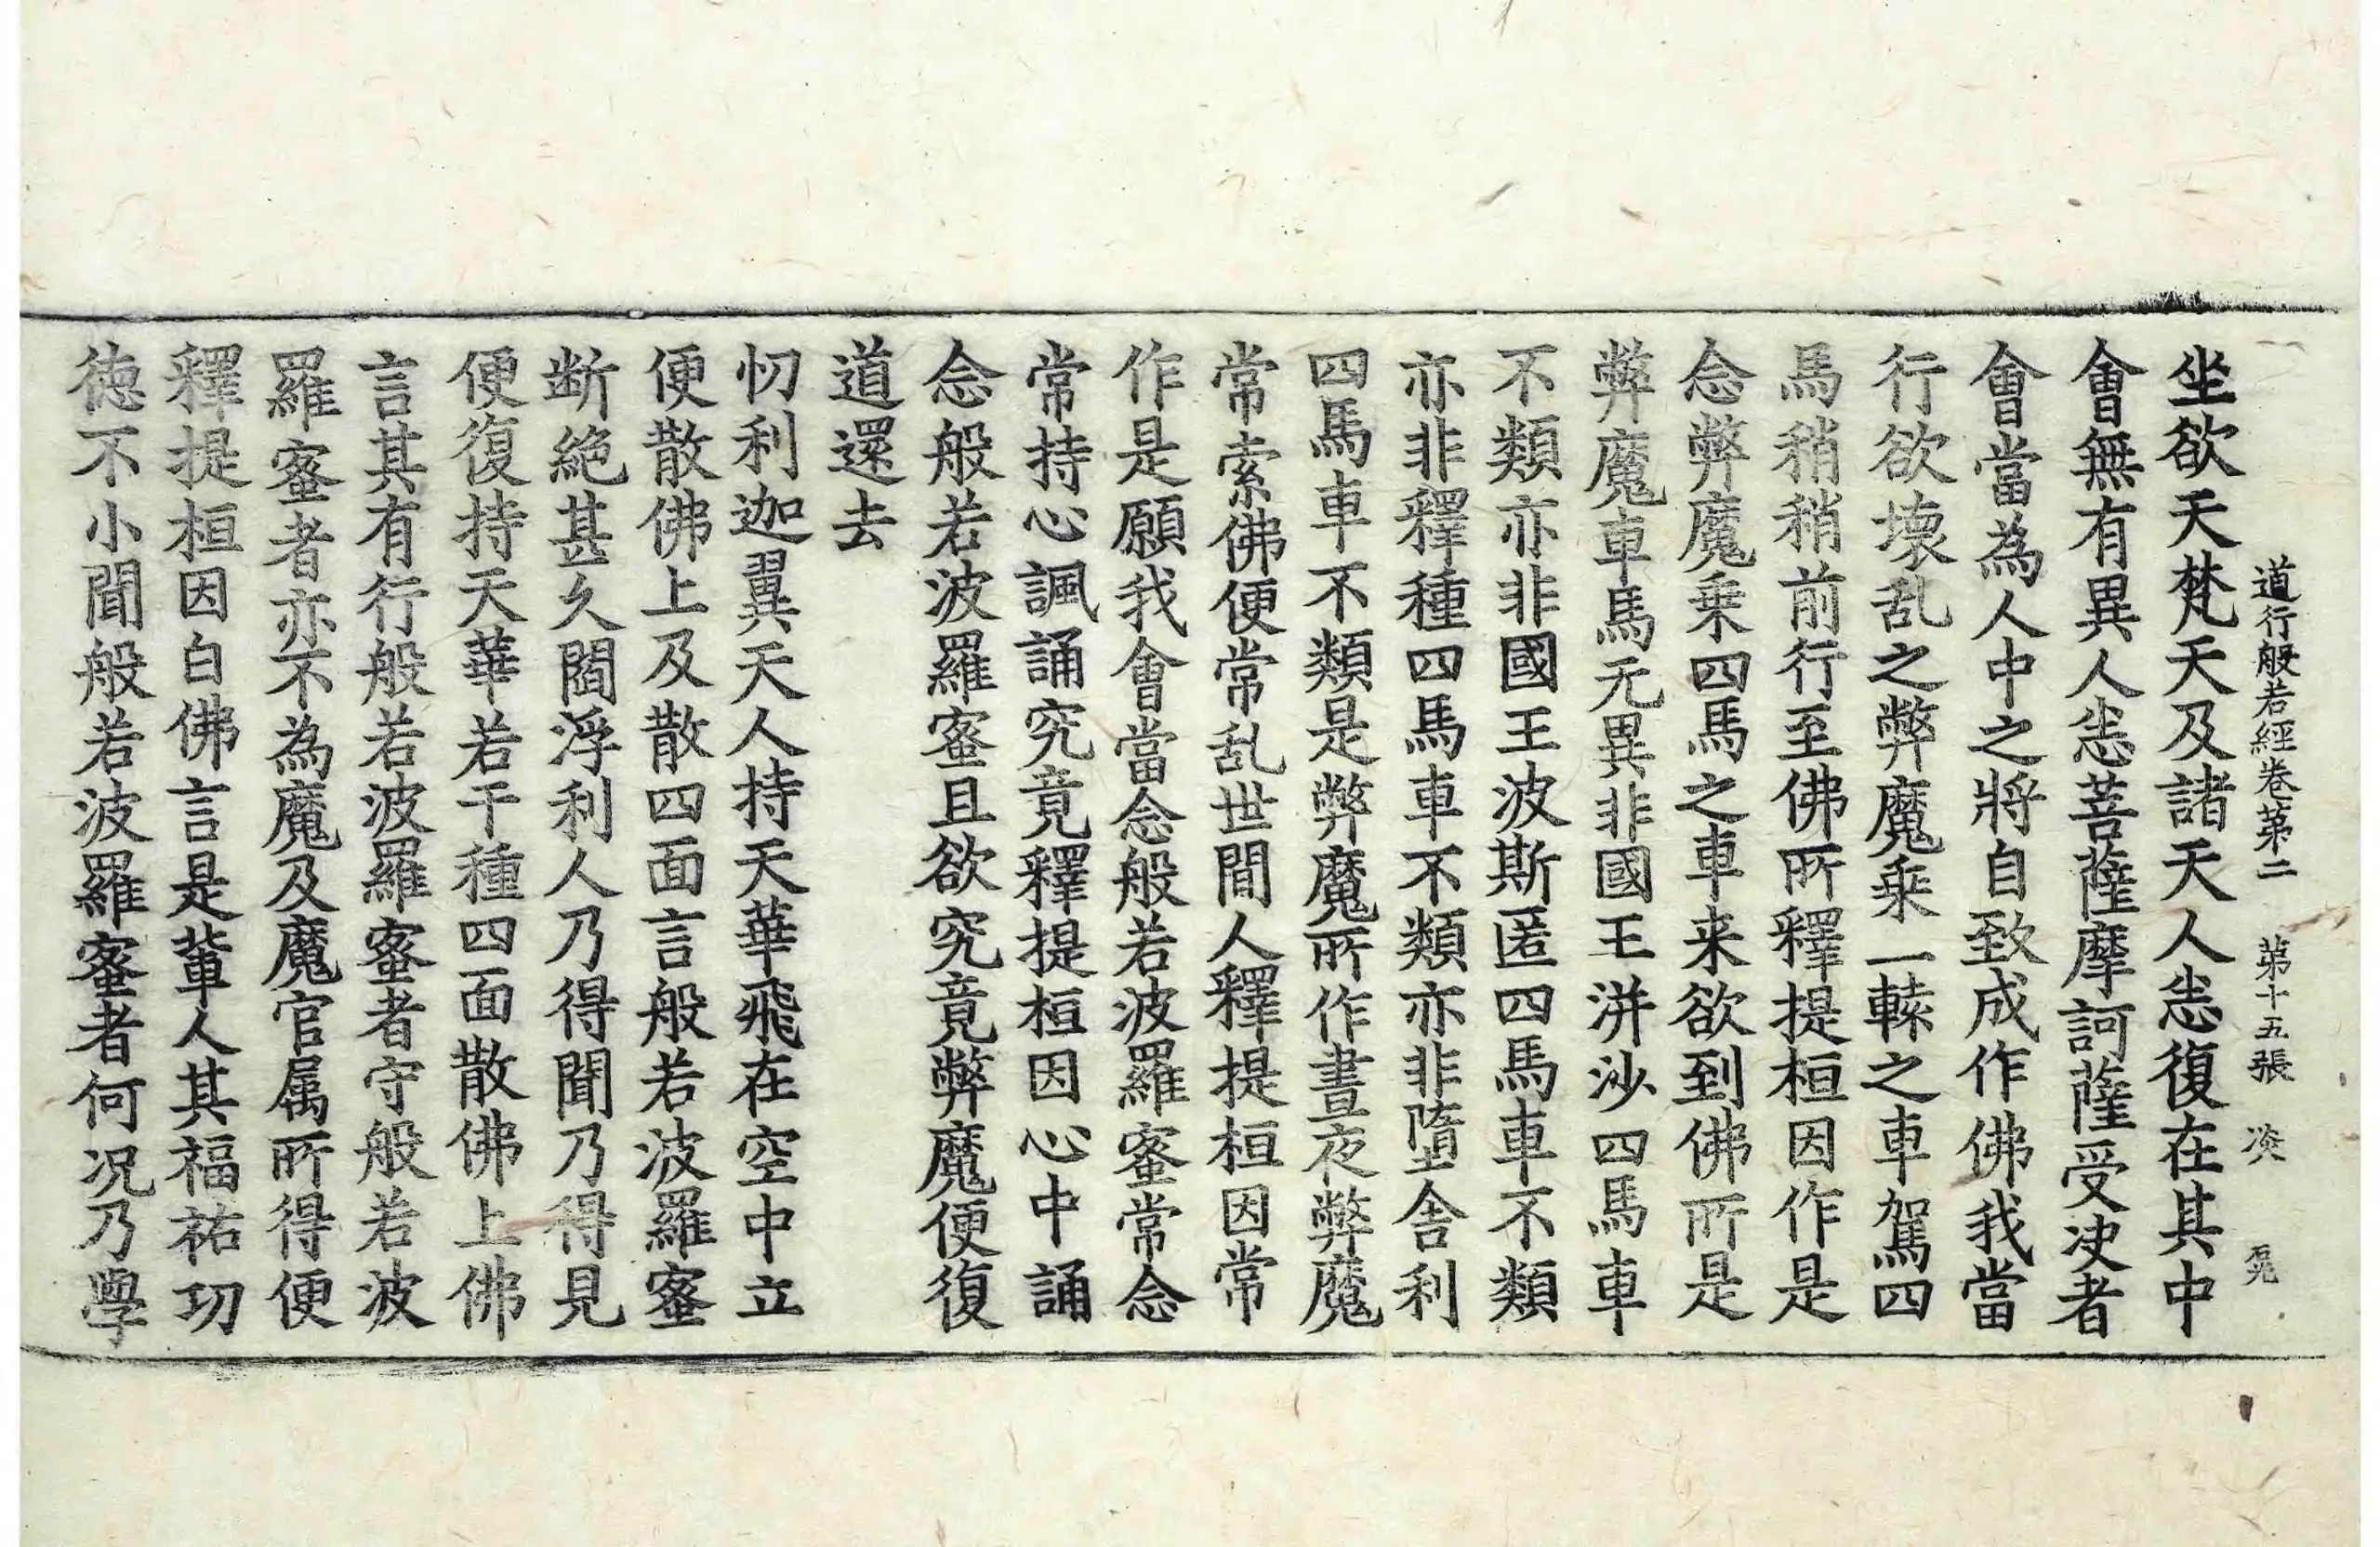 道行般若經卷第二 第十五張 羙
坐欲天梵天及諸天人恙復在其中
會無有異人恙菩薩摩訶薩受决者
會當為人中之將自致成作佛我當
行欲壊乱之弊魔乘一轅之車駕四
馬稍稍前行至佛所釋提桓因作是
念弊魔乘四馬之車来欲到佛所是
弊魔車馬无異非國王洴沙四馬車
不類亦非國王波斯匿四馬車不類
亦非釋種四馬車不類亦非墮舎利
四馬車不類是弊魔所作晝夜弊魔
常索佛便常乱世間人釋提桓因常
作是願我會當念般若波羅蜜常念
常持心諷誦究竟釋提桓因心中誦
念般若波羅蜜且欲究竟弊魔便復
道還去
忉利迦翼天人持天華飛在空中立
便散佛上及散四面言般若波羅蜜
断絶甚久閻浮利人乃得聞乃得見
便復持天華若干種四面散佛上佛
言其有行般若波羅蜜者守般若波
羅蜜者亦不為魔及魔官属所得便
釋提桓因白佛言是軰人其福祐功
徳不小聞般若波羅蜜者何况乃學